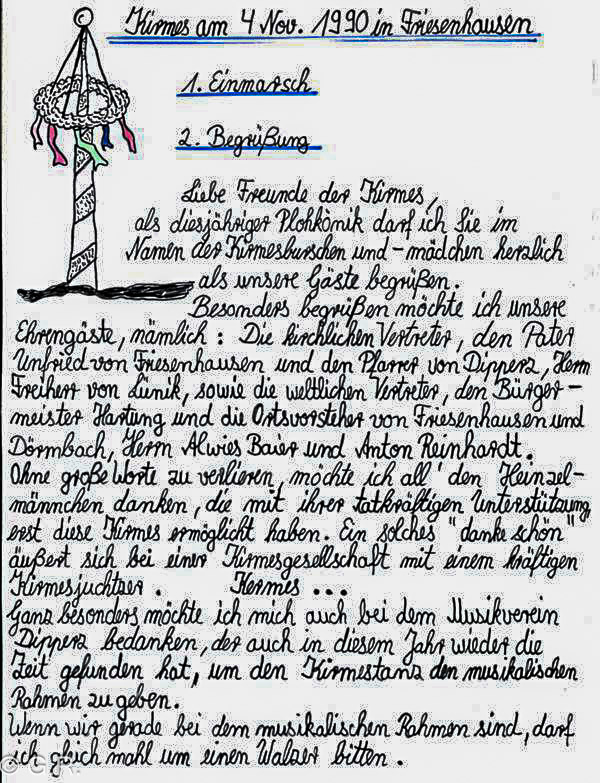 Kirmes am 4 Nov. 1990 in Friesenhausen
1. Einmarsch
2. Begrüßung
Liebe Freunde der Kirmes,
als diesjähriger Plohkönik darf ich Sie im
Namen der Kirmesburschen und - mädchen herzlich
als unsere Gäste begrüßen.
Besonders begrüßen möchte ich unsere
Ehrengäste, nämlich : Die kirchlichen Vertreter, den Pater
Unfried von Friesenhausen und den Pfarrer von Dipperz, Herrn
Freiherr von Lünik, sowie die weltlichen Vertreter, den Bürger-
meister Hartung und die Ortsvorsteher von Friesenhausen und
Dörmbach, Herrn Alwies Baier und Anton Reinhardt.
Ohne große Worte zu verlieren, möchte ich all' den Heinzel-
männchen danken, die mit ihrer tatkräftigen Unterstützung
erst diese Kirmes ermöglicht haben. Ein solches "danke schön"
äußert sich bei einer Kirmesgesellschaft mit einem kräftigen
Kirmesjuchtzer. Kermes ...
Ganz besonders möchte ich mich auch bei dem Musikverein
Dipperz bedanken, der auch in diesem Jahr wieder die
Zeit gefunden hat, um den Kirmestanz den musikalischen
Rahmen zu geben.
Wenn wir gerade bei dem musikalischen Rahmen sind, darf
ich gleich mahl um einen Walzer bitten.